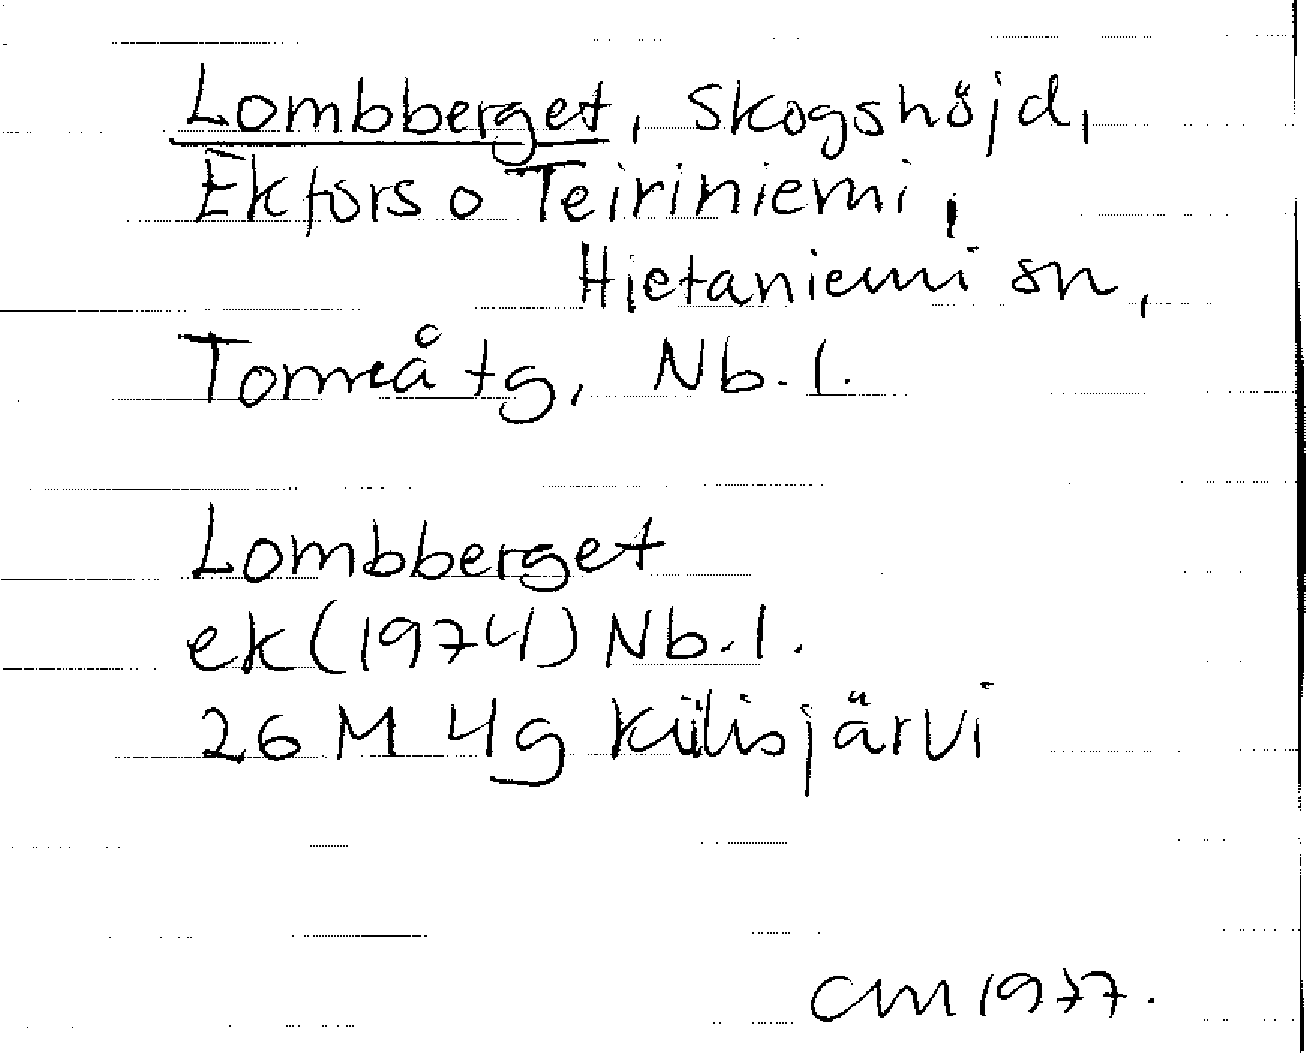 Lombberget, skogshöjd,
Ekfors o Teiriniemi,
Hietaniemi sn,
Torneå tg, Nb. l.
Lombberget
ek (1974) Nb. l.
26 M 4g Kiilisjärvi
CM 1977.